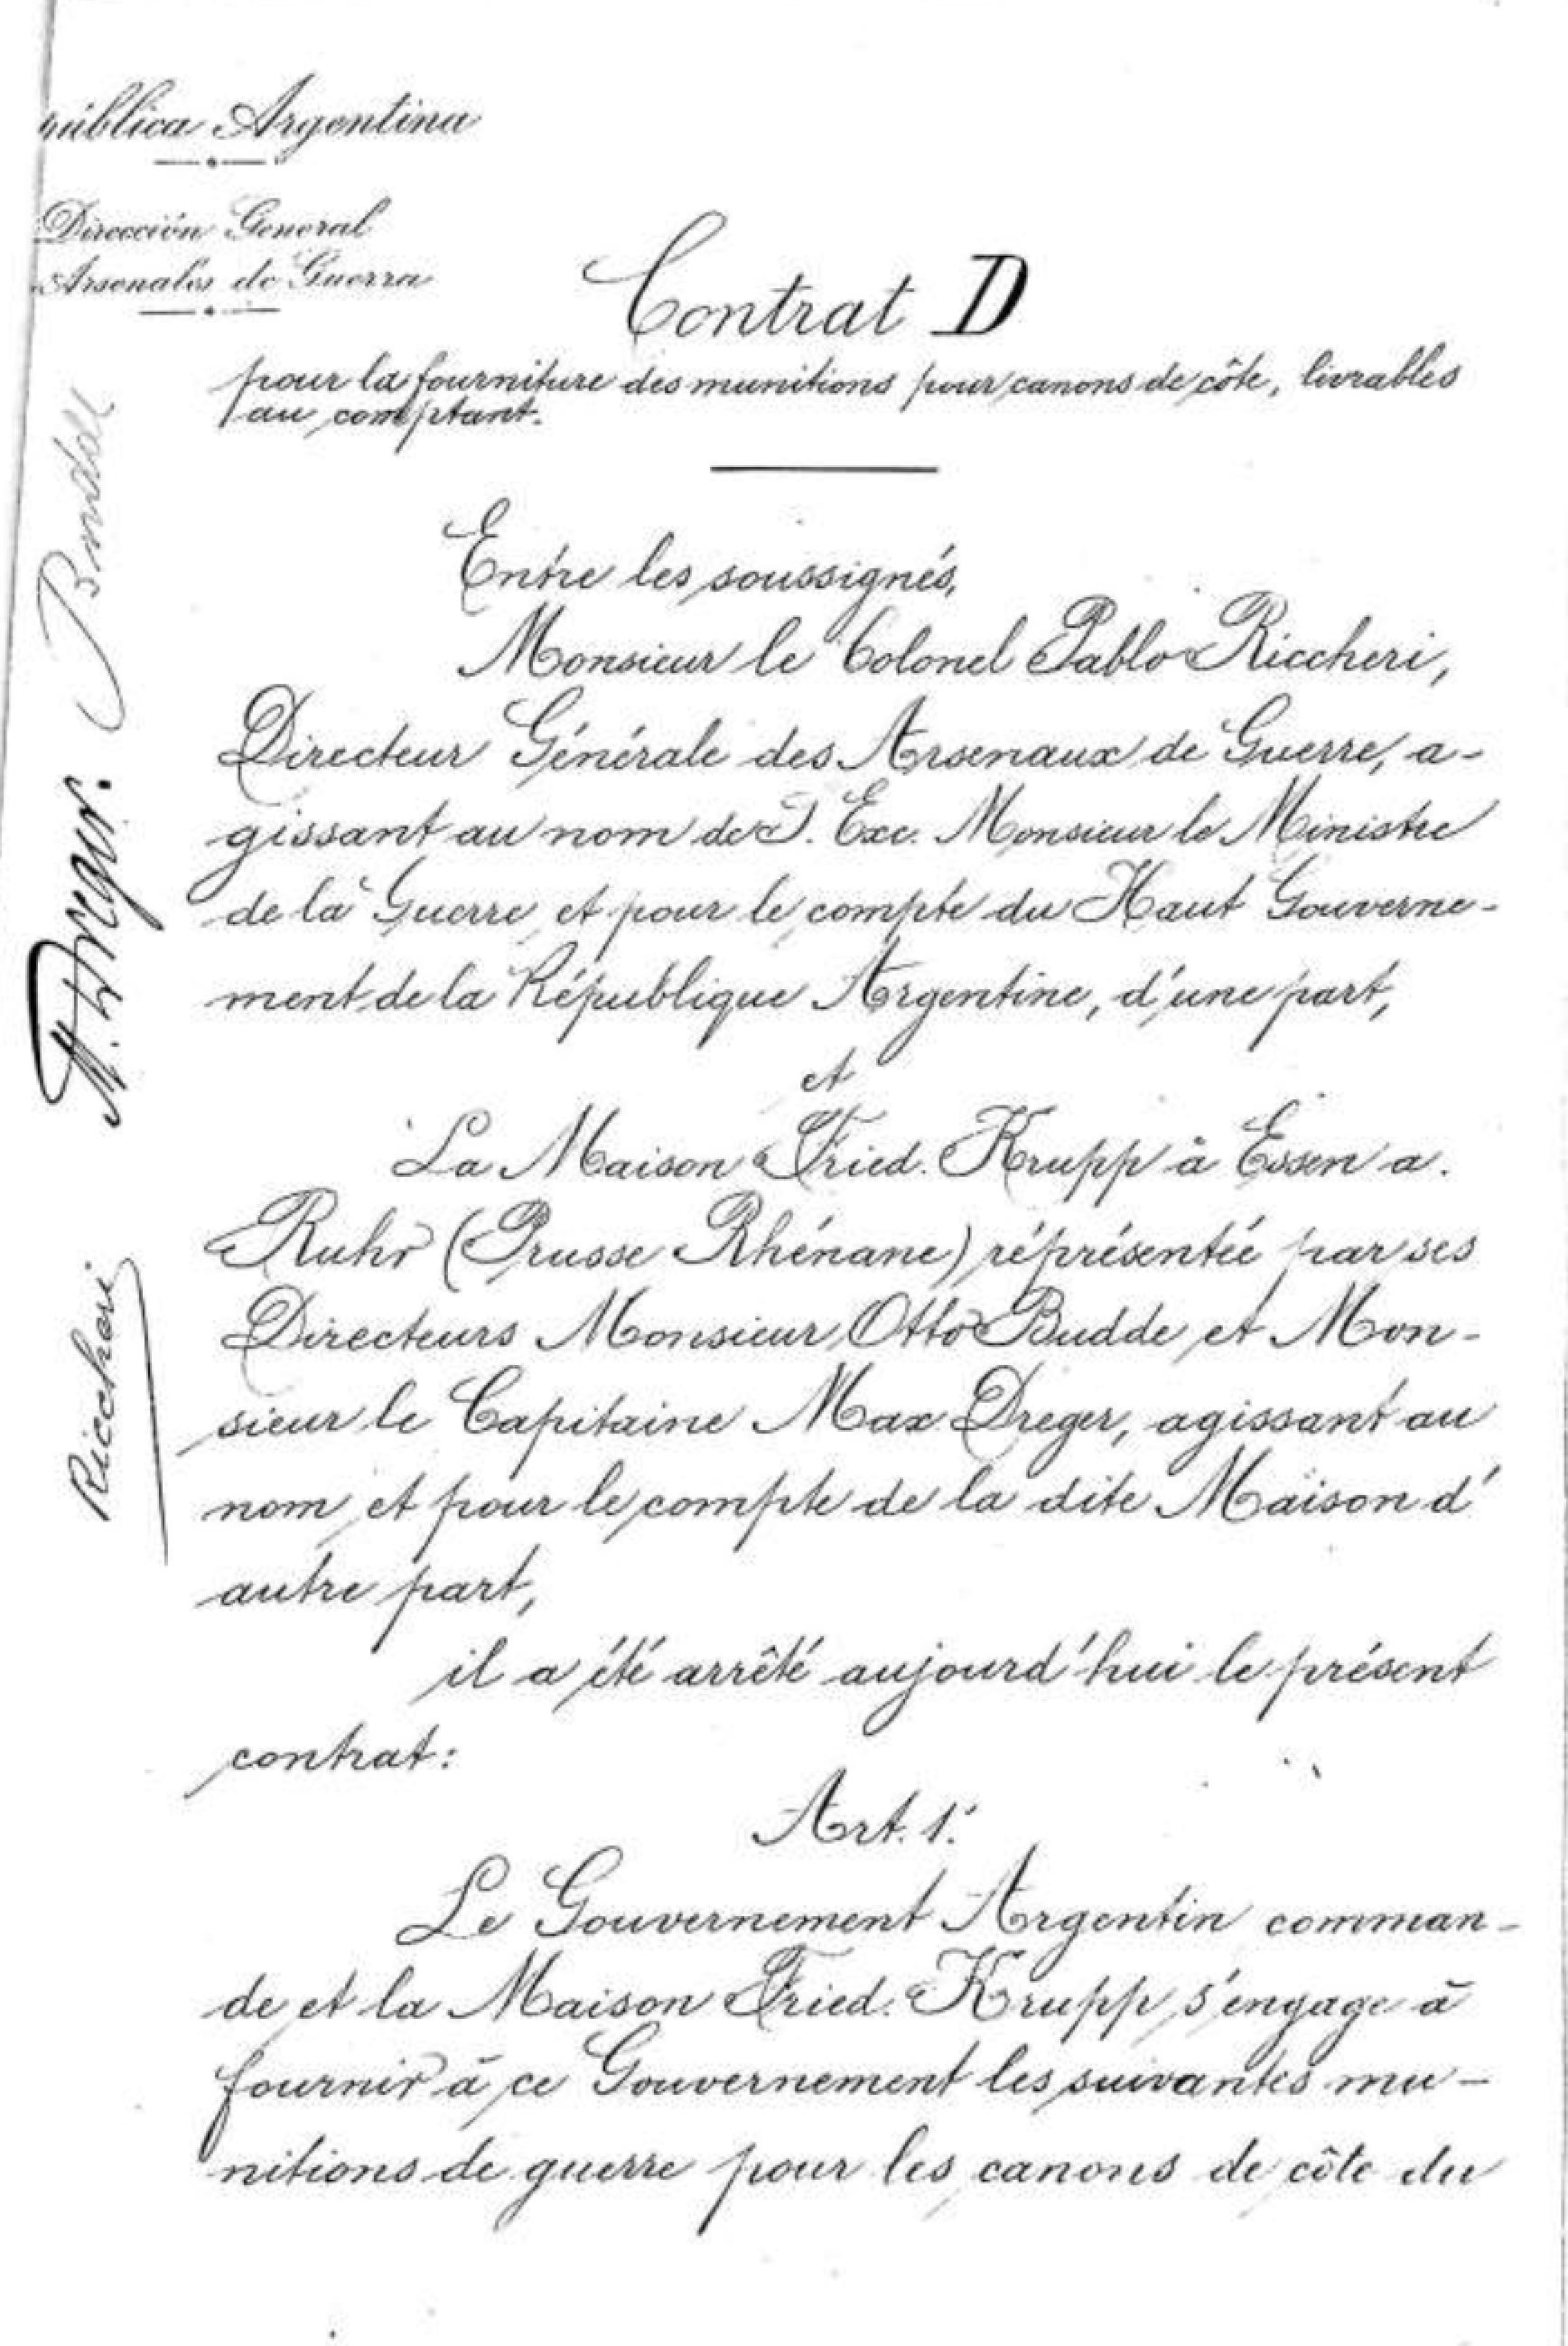 pública Argentina
Dirección General
Arsenales de Guerra
Contrat D
pour la fourniture des munitions pour canons de côte, livrables
au comptant.
Entre les soussignés,
Monsieur le Colonel Pablo Riccheri,
Directeur Générale des Arsenaux de Guerre, a-
gissant au nom de S. Exc. Monsieur le Ministre
de la Guerre et pour le compte du Haut Gouverne-
ment de la République Argentine, d'une part,
et
La Maison Fried. Krupp à Essen a.
Ruhr (Prusse Rhénane) réprésentée par ses
Directeurs Monsieur Otto Budde et Mon-
sieur le Capitaine Max Dreger, agissant au
nom et pour le compte de la dite Maison d'
autre part,
il a été arrêté aujourd'hui le présent
contrat:
Art. 1.
Le Gouvernement Argentin comman-
de et la Maison Fried. Krupp s'engage à
fournir à ce Gouvernement les suivantes mu-
nitions de guerre pour les canons de côte du
Budde
M. Dreger.
Riccheri